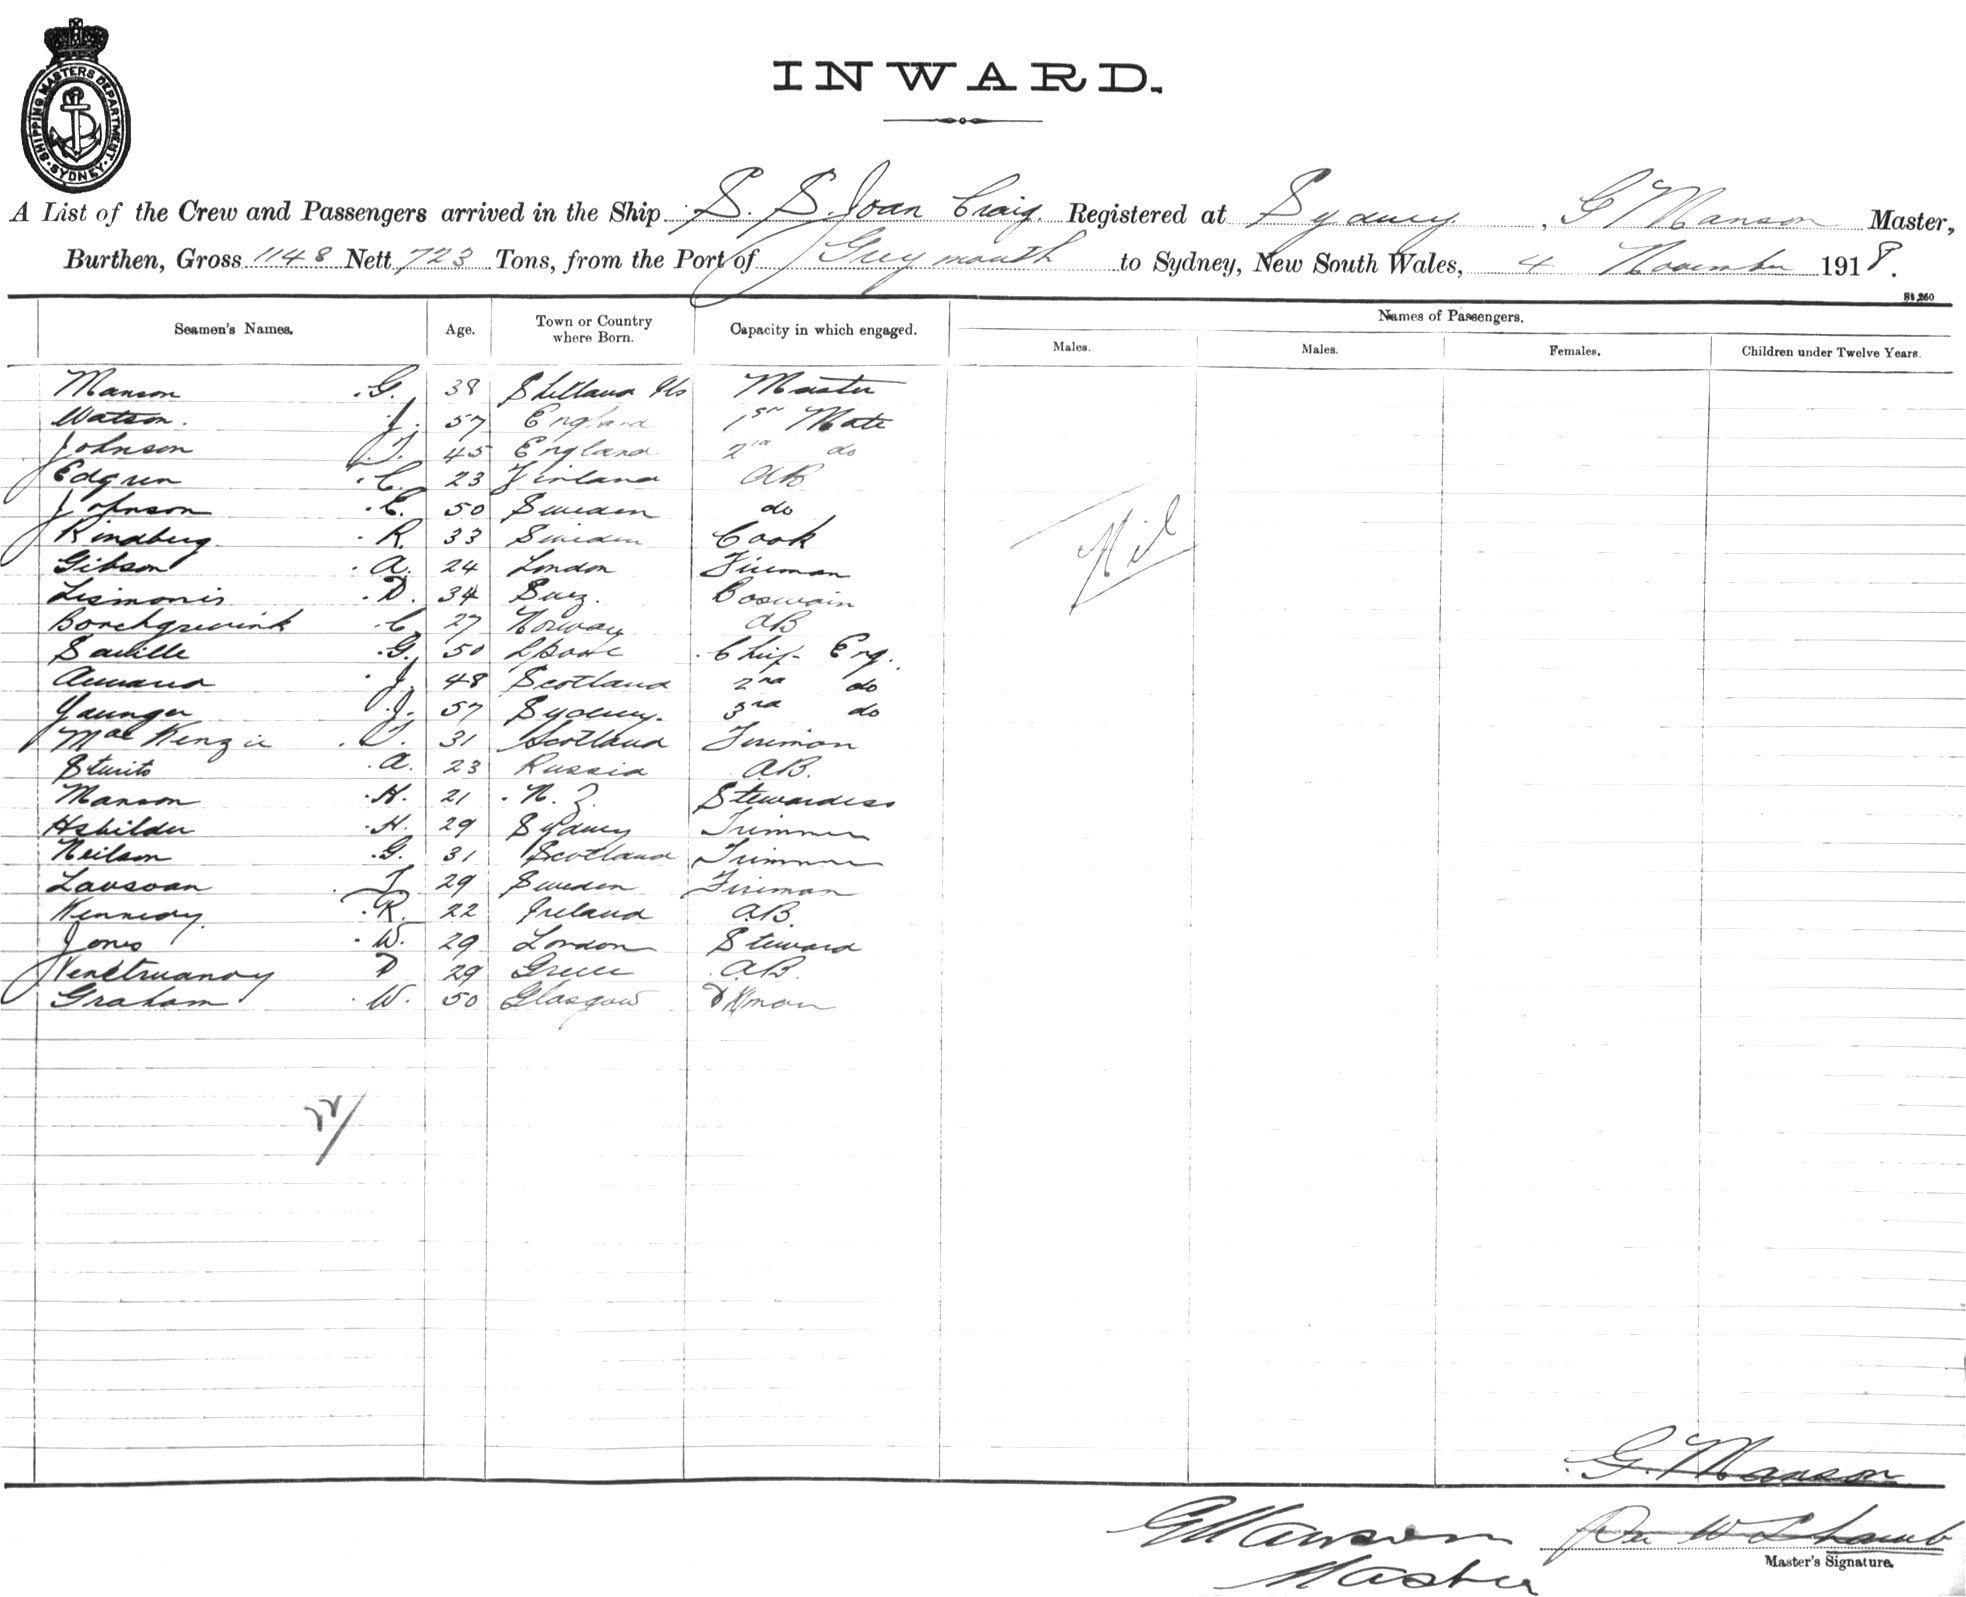 SHIPPING MASTERS DEPARTMENT. SYDNEY
INWARD.
A List of the Crew and Passengers arrived in the Ship S. S. Joan Craig. Registered at Sydney, G Manson Master,
Burthen, Gross 1148 Nett 723 Tons, from the Port of Greymouth to Sydney, New South Wales, 4 November 1918.
Seamen's Names. Age. Town or Country where Born. Capacity in which engaged. Names of Passengers.
Males. Males. Females. Children under Twelve Years.
Manson G. 38 Shetland Is Master
Watson. J. 57 England 1st Mate
Johnson T. 45 England 2nd do
Edgren C. 23 Finland AB
Johnson C. 50 Sweden do
Rindberg R. 33 Sweden Cook
Nil
Gibson A. 24 London Fireman
Lismonis D. 34 Suez. Boswain
Borchgrevink C 27 Norway AB
Saville G. 50 Chief Eng.
J. 48 Scotland 2nd do
Younger J. 57 Sydney. 3rd do
MacKenzie T. 31 Scotland Fireman
Sturits A. 23 Russia A.B.
Manson H. 21 N. Z. Stewardess
H. 29 Sydney Trimmer
Neilson G. 31 Scotland Trimmer
29 Sweden Fireman
Kennedy. R. 22 Ireland A.B.
Jones W. 29 London Steward
D 29 Greece A.B.
Graham W. 50 Glasgow
22/
G. Manson
GManson
Master
Per W
Master's Signature.